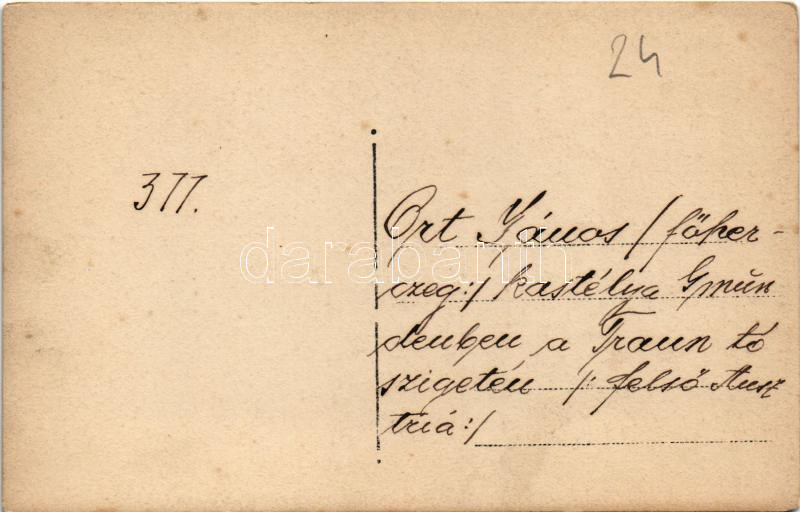 24
377.
Ort János /főher-
czeg:/ kastélya Gmün
denben a Traun tó
szigetén /: felső Ausz
triá:/
darabanth